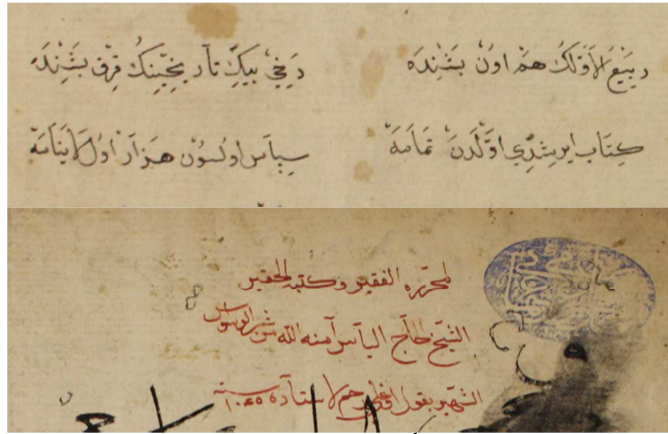 ربيع الاَوَّلك هم اون بشنده
دخي بيك تاريخنك قرق بشنده
كتاب ايرشدي اوّلدن تمامه
سپاس اولسون هزار اول لاينامه
لمحرّره الفقير وكتبه الحقير
الشيخ الحاج الياس آمنه الله من شر الوسواس
الشهير بقول رحم لاستاده سنه ١٠٤٥